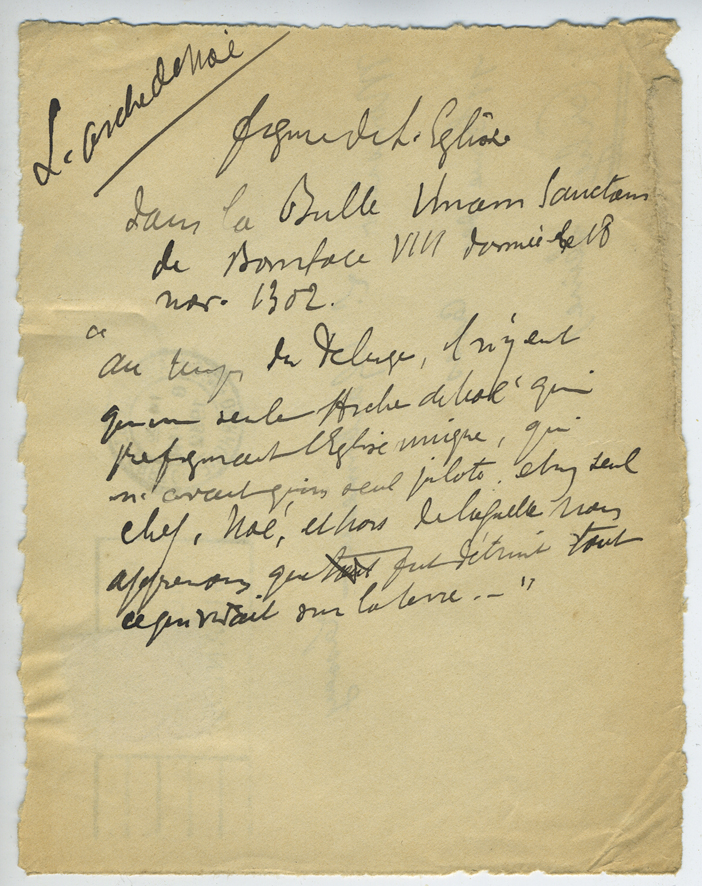 L'arche de Noé
figure de l'Eglise
dans la Bulle Unam Sanctam
de Boniface VIII donnée le 18
nov. 1302.
"
au temps du Déluge, il n'y eut
qu'une seule Arche de Noé qui
préfigurait l'Eglise unique, qui
n'avait qu'un seul pilote, et un seul
chef, Noé, et hors de laquelle nous
apprenons que tout fut détruit tout
ce qui vivait sur la terre. — "